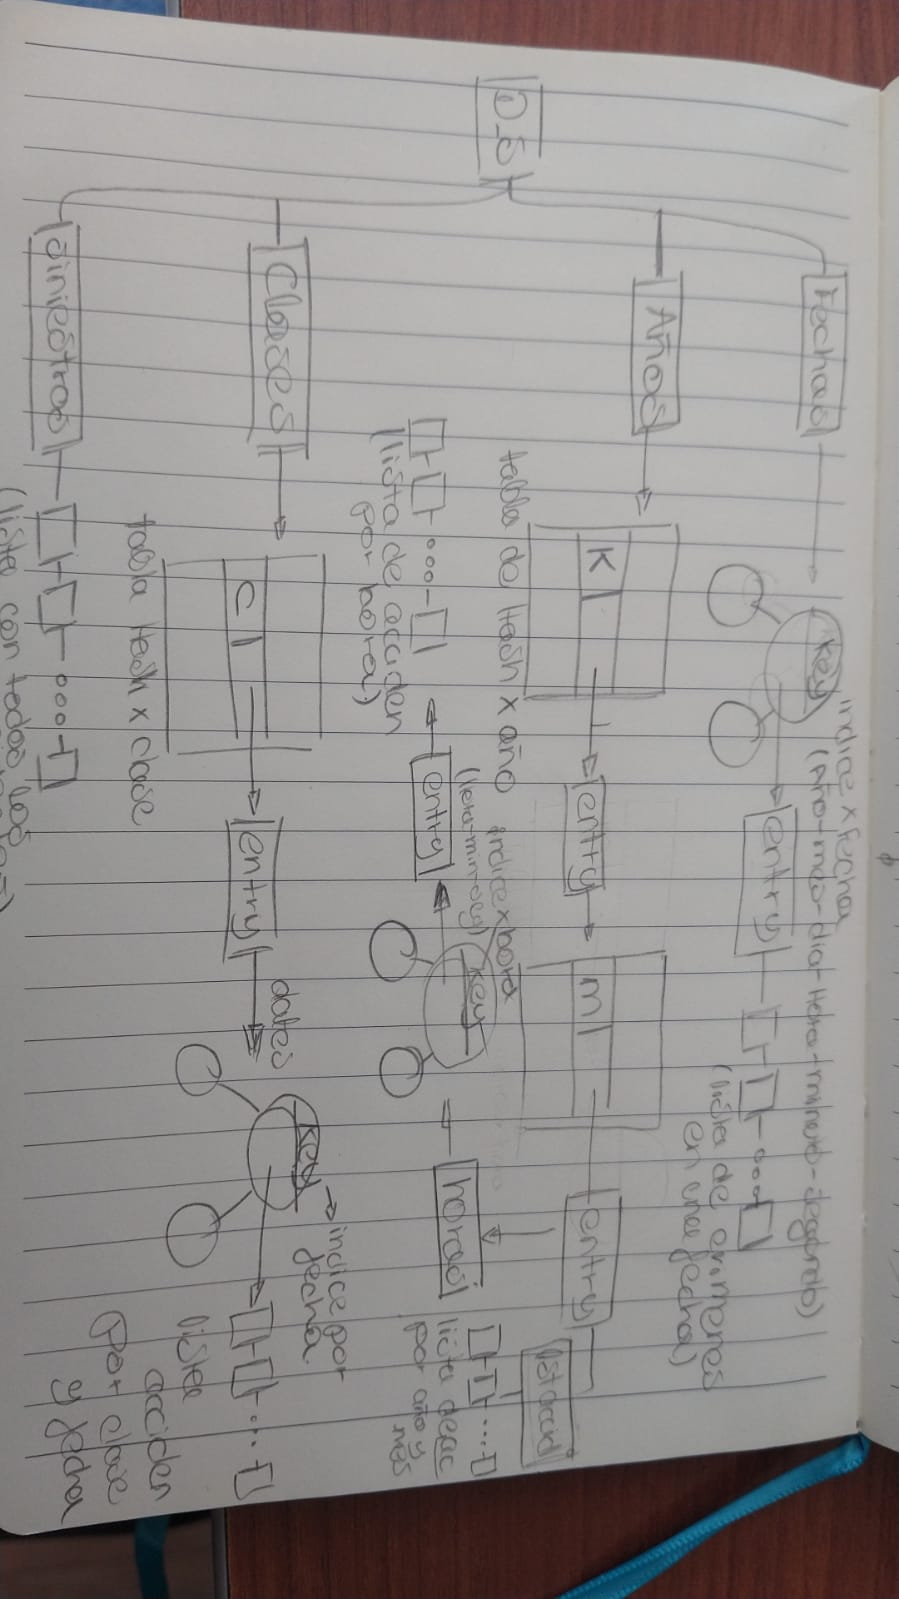 D.S
Fechas
key
indice x fecha
(Año-mes-dia-Hora-minuto-segundo)
entry
(lista de crimenes
en una fecha)
Años
K
tabla de Hash x año
entry
M
entry
lstaccid
horas
lista de acc
por año y
mes
indice x hora
(Hora-min-seg)
key
entry
(lista de acciden
por hora)
Clases
C
tabla Hash x clase
entry
dates
key
indice por
fecha
lista
acciden
por clase
y fecha
Siniestros
(lista con todos los